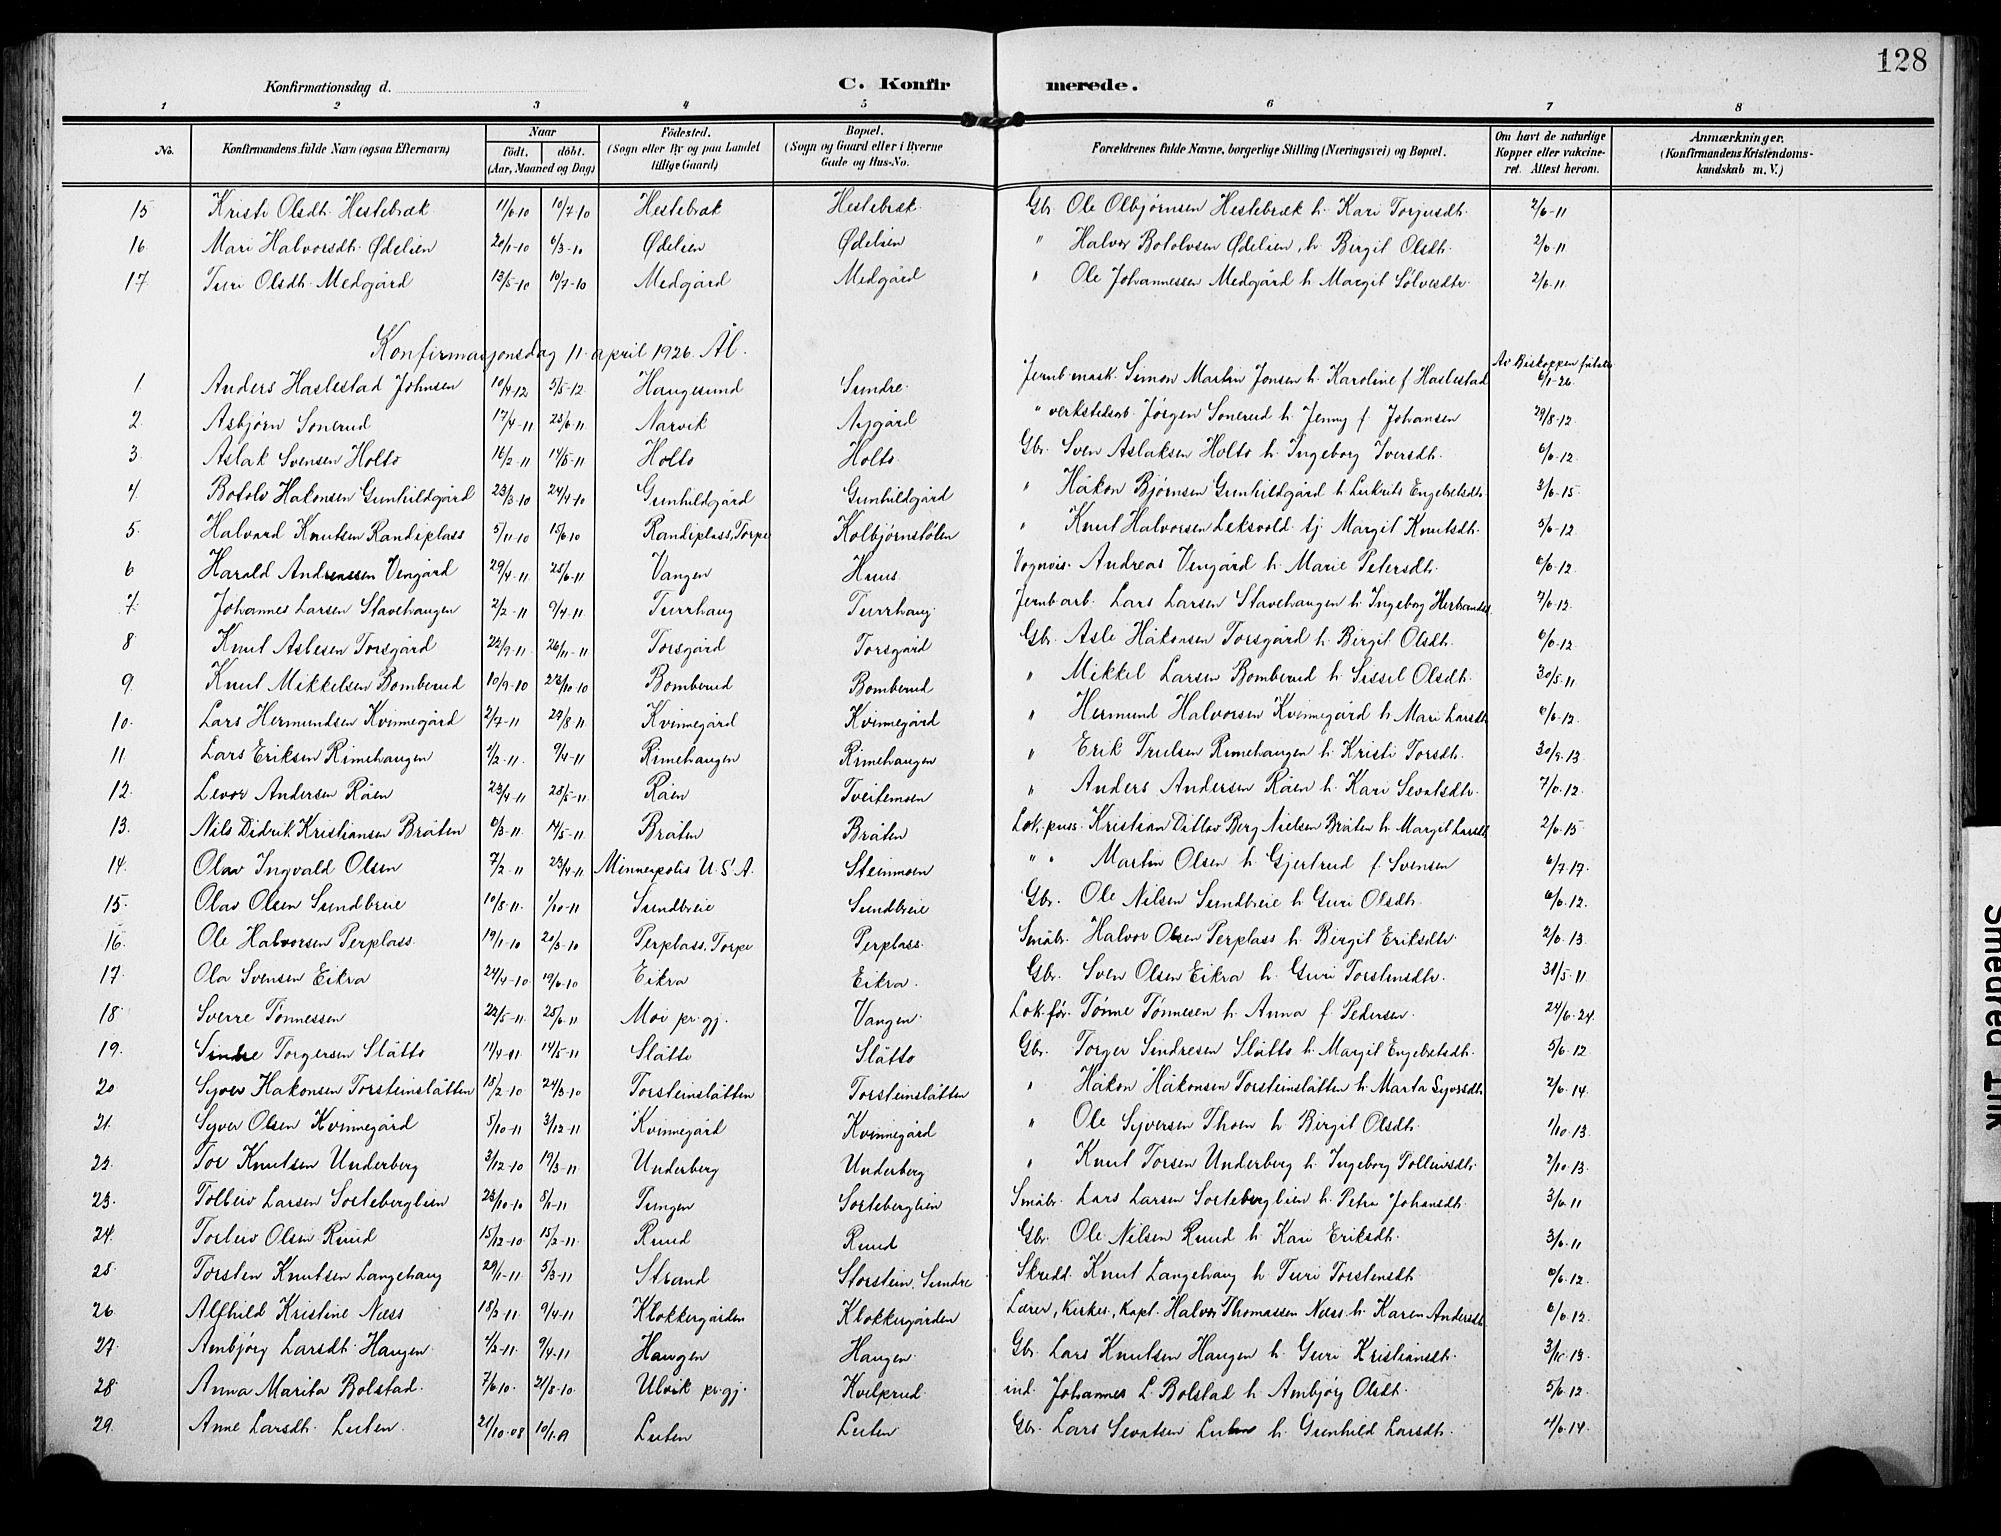 128
Konfirmationsdag d.
C. Konfirmerede.
1 2 3 4 5 6 7 8
No. Konfirmandens fulde Navn (ogsaa Efternavn) Naar født. døbt. (Aar, Maaned og Dag) Fødested. (Sogn eller By og paa Landet tillige Gaard) Bopæl. (Sogn og Gaard eller i Byerne Gade og Hus-No. Forældrenes fulde Navne, borgerlige Stilling (Næringsvei) og Bopæl. Om havt de naturlige Kopper eller vakcineret. Attest herom. Anmærkninger. (Konfirmandens Kristendomskundskab m. V.)
15 Kristi Olsdt. Hestebræk 11/6-10 10/7-10 Hestebræk Hestebræk. Gbr. Ole Olbjørnsen Hestebræk h. Kari Torjusdt. 2/6-11
16 Mari Halvorsdt. Ødelien 20/1-10 6/3-10 Ødelien Ødelien " Halvor Botolvsen Ødelien, h. Birgit Olsdt. 2/6-11
17 Turi Olsdt. Medgård 13/5-10 10/7-10 Medgård Medgård " Ole Johannessen Medgård h. Margit Sølvesdtr. 2/6-11
Konfirmasjonsdag 11. april 1926. Ål.
1. Anders Haslestad Johnsen 10/4-12 5/5-12 Haugesund Sundre. Jernb.mask. Simon Martin Jonsen h. Karoline f. Haslestad Av Biskoppen 6/1-26
2. Asbjørn Sonerud 17/4-11 25/6-11 Narvik Nygård " verkstedsarb. Jørgen Sonerud h. Jenny f. Johansen 29/8-12.
3. Aslak Svensen Holto 16/2-11 14/5-11 Holto Holto. Gbr. Sven Aslaksen Holto h. Ingeborg Iversdt. 6/6-12.
4. Botolv Hakonsen Gunhildgård 23/3-10 24/4-10 Gunhildgård Gunhildgård " Håkon Bjørnsen Gunhildgård h. Lukrits Engebretsdt. 3/6-15.
5. Halvard Knutsen Randiplass 5/11-10 15/6-10 Randiplass, Torpe Kolbjørnstølen " Knut Halvorsen Leksvold tj. Margit Knutsdt. 5/6-12
6 Harald Andreassen Vengård 29/4-11 25/6-11 Vangen Huus. Vognvis. Andreas Vengård h. Marie Petersdt. 6/6-12.
7. Johannes Larsen Stavehaugen 2/2-11 9/4-11 Turrhaug Turrhaug. Jernb.arb. Lars Larsen Stavehaugen h. Ingeborg Herbrandsd. 7/6-12.
8 Knut Aslesen Torsgård 22/9-11. 26/11-11 Torsgård Torsgård Gbr. Asle Håkonsen Torsgård h. Birgit Olsdt. 6/6-12.
9. Knut Mikkelsen Bomberud 10/9-10 23/10-10 Bomberud Bomberud " Mikkel Larsen Bomberud h. Sissel Olsdt. 30/5-11
10. Lars Hermundsen Kvinnegård 2/7-11 27/8-11 Kvinnegård Kvinnegård " Hermund Halvorsen Kvinnegård h. Mari Larsdt. 6/6-12.
11. Lars Eriksen Rimehaugen 1/2-11. 9/4-11 Rimehaugen Rimehaugen " Erik Trulsen Rimehaugen h. Kristi Torsdt. 30/9-13.
12. Levor Andersen Råen 23/4-11 28/5-11. Råen Tveitemoen " Anders Andersen Råen h. Kari Sevatsdtr. 7/6-12.
13. Nils Didrik Kristiansen Bråten 6/3-11. 14/5-11. Bråten Bråten Lok.puss. Kristian Ditlov Berg Nielsen Bråten h. Margit Larsdt. 2/6-15
14. Olav Ingvald Olsen 7/2-11 23/4-11 Minnepolis U.S.A. Steinmoen " " Martin Olsen h. Gjertrud f. Svensen 6/7-17.
15. Olav Olsen Sundbreie 10/8-11. 1/10-11 Sundbreie Sundbreie Gbr. Ole Nilsen Sundbreie h. Guri Olsdt. 6/6-12.
16. Ole Halvorsen Perplass. 19/1-10 20/3-10 Perplass, Torpe Perplass. Småbr. Halvor Olsen Perplass h. Birgit Eriksdtr. 2/6-13.
17. Ola Svensen Eikra 24/4-10 19/6-10 Eikra Eikra. Gbr. Sven Olsen Eikra h. Guri Torstensdtr. 31/5-11.
18. Sverre Tønnessen 22/5-11. 25/6-11 Moi pr.gj. Vangen Lok.før. Tønne Tønnesen h. Anna f. Pedersen. 24/6-24.
19. Sindre Torgersen Slåtto 11/4-11 14/5-11 Slåtto Slåtto Gbr. Torger Sindresen Slåtto h. Margit Engebretsdt. 5/6-12
20 Syver Hakonsen Torsteinslåtten 15/2-10 24/3-10 Torsteinslåtten Torsteinslåtten " Håkon Håkonsen Torsteinslåtten h. Marta Syversdt. 2/6-14.
21. Syver Olsen Kvinnegård 5/10-11 3/12-11 Kvinnegård Kvinnegård " Ole Syversen Thoen h. Birgit Olsdt. 1/10-13.
22. Tor Knutsen Underberg 3/12-10 19/3-11 Underberg Underberg " Knut Torsen Underberg h. Ingeborg Tolleivsdt. 2/10-13.
23. Tolleiv Larsen Sorteberglien 23/10-10 8/1-11 Tungen Sorteberglien Småbr. Lars Larsen Sorteberglien h. Petra Johansdt. 3/6-11
24. Torleiv Olsen Ruud 15/12-10 15/2-11. Ruud Ruud Gbr. Ole Nilsen Ruud h. Kari Eriksdt. 3/6-11
25. Torsten Knutsen Langehaug 29/1-11. 5/3-11 Strand Storstein, Sundre Skredd. Knut Langehaug h. Turi Torstensdt. 6/6-12.
26 Alfhild Kristine Næss 18/2-11. 9/4-11 Klokkergården Klokkergården Lærer, Kirkes., Kapt. Halvor Thomassen Næss. h. Karen Andersdt. 6/6-12
27 Ambjørg Larsdt. Haugen. 4/2-11. 9/4-11 Haugen Haugen. Gbr. Lars Knutsen Haugen h. Guri Kristiansdt. 3/10-13.
28 Anna Marita Bolstad. 7/6-10. 21/8-10. Ulvik pr.gj. Kvelprud. ind. Johannes L. Bolstad h. Ambjørg Olsdt. 5/6-12.
29. Anne Larsdt. Luten. 21/10-08 10/1-09 Luten Luten. Gbr. Lars Sevatsen Luten h. Gunhild Larsdt. 4/6-14.